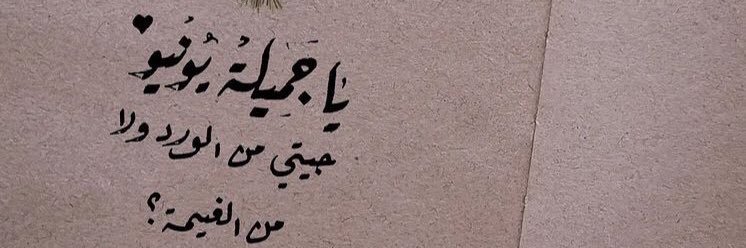 يَا جَمِيلةُ يُونيُو ♥
جيتي من الورد ولا
من الغيمة؟